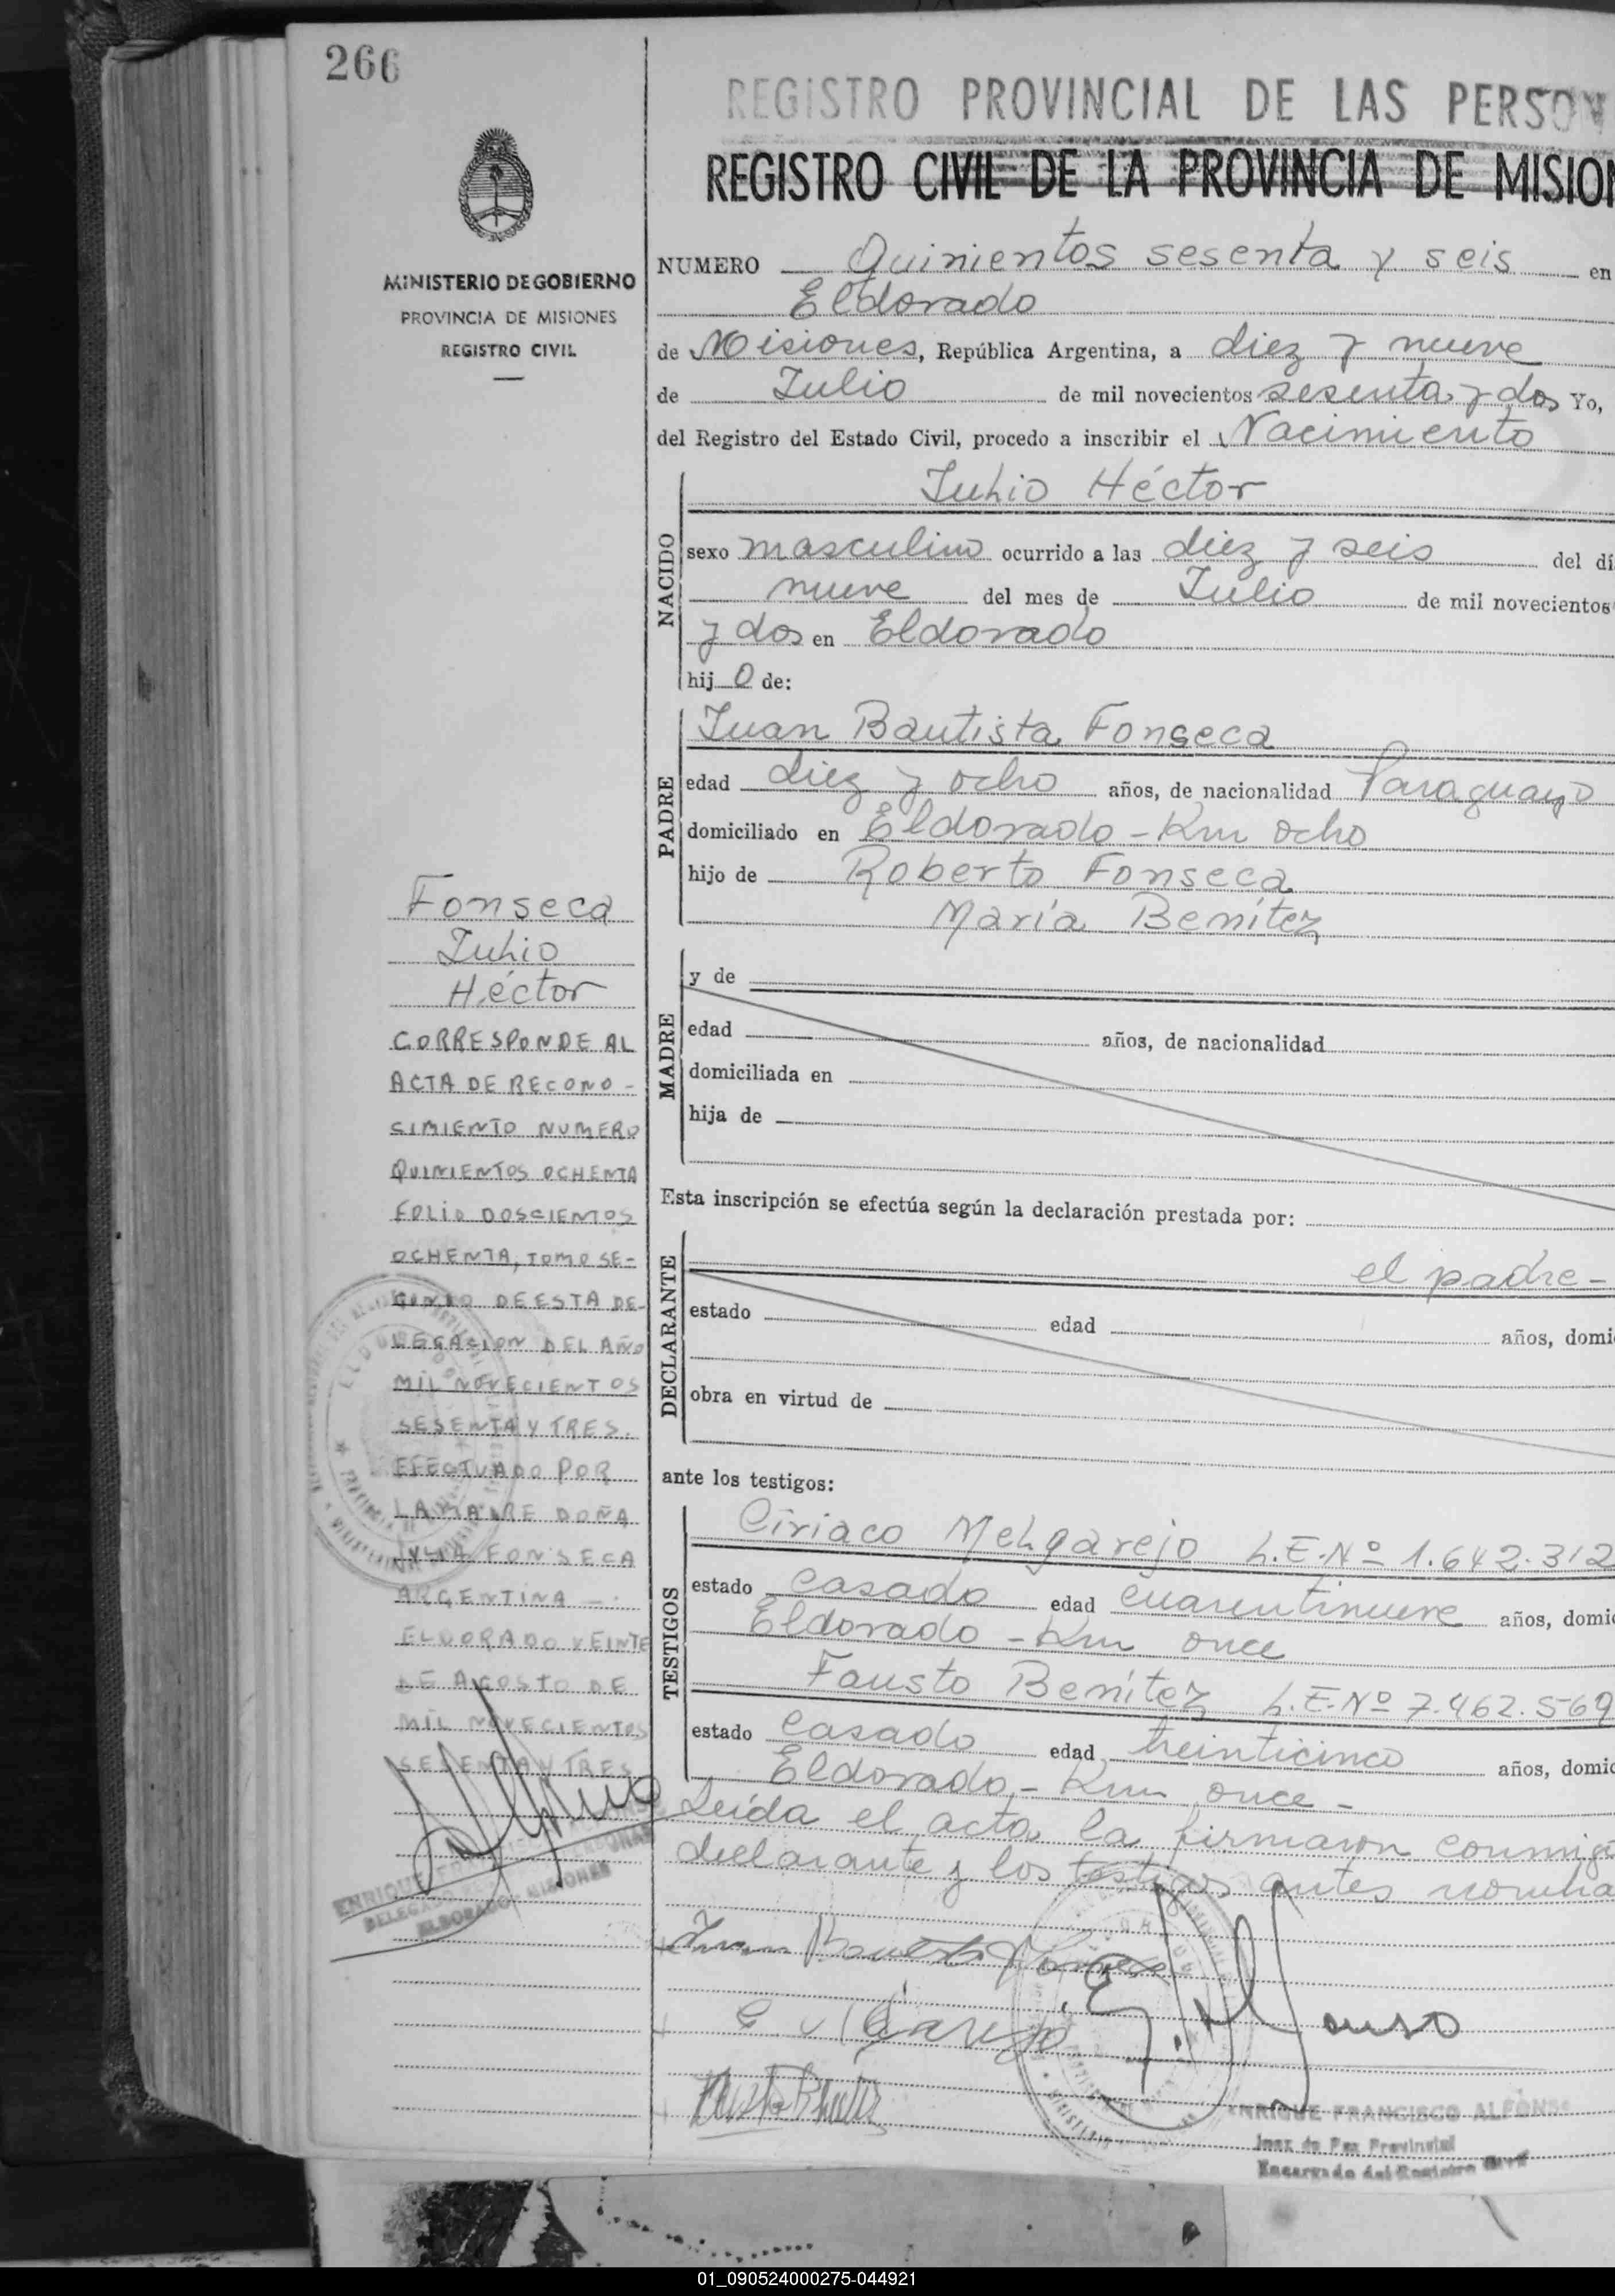 266
REGISTRO PROVINCIAL DE LAS PERSON
REGISTRO CIVIL DE LA PROVINCIA DE MISION
MINISTERIO DE GOBIERNO
PROVINCIA DE MISIONES
REGISTRO CIVIL
NUMERO Quinientos sesenta y seis en
Eldorado
de Misiones, República Argentina, a diez y nueve
de Julio de mil novecientos sesenta y dos Yo,
del Registro del Estado Civil, procedo a inscribir el Nacimiento
NACIDO
Julio Héctor
sexo masculino ocurrido a las diez y seis del dí
nueve del mes de Julio de mil novecientos
y dos en Eldorado
hij o de:
PADRE
Juan Bautista Fonseca
edad diez y ocho años, de nacionalidad Paraguayo
domiciliado en Eldorado - Km ocho
hijo de Roberto Fonseca
María Benítez
MADRE
y de
edad años, de nacionalidad
domiciliada en
hija de
Esta inscripción se efectúa según la declaración prestada por:
DECLARANTE
el padre -
estado edad años, domi
obra en virtud de
ante los testigos:
TESTIGOS
Ciriaco Melgarejo L.E.Nº 1.642.312
estado casado edad cuarentinueve años, domi
Eldorado - Km once
Fausto Benítez L.E.Nº 7.462.569
estado casado edad treinticinco años, domic
Eldorado - Km once -
Leída el acta la firmaron conmigo
declarante y los testigos antes nombra
Fonseca
Julio
Héctor
CORRESPONDE AL
ACTA DE RECONO-
CIMIENTO NUMERO
QUINIENTOS OCHENTA
FOLIO DOSCIENTOS
OCHENTA, TOMO SE-
GUNDO DE ESTA DE-
LEGACION DEL AÑO
MIL NOVECIENTOS
SESENTA Y TRES.
EFECTUADO POR
LA MADRE DOÑA
JULIA FONSECA
ARGENTINA -.
ELDORADO VEINTE
DE AGOSTO DE
MIL NOVECIENTOS
SESENTA Y TRES
ENRIQUE
DELEGADO
ELDORADO MISIONES
Juan Bautista Fonseca
ENRIQUE FRANCISCO ALFONS
Juez de Paz Provincial
Encargado del Registro Civil
01_090524000275-044921